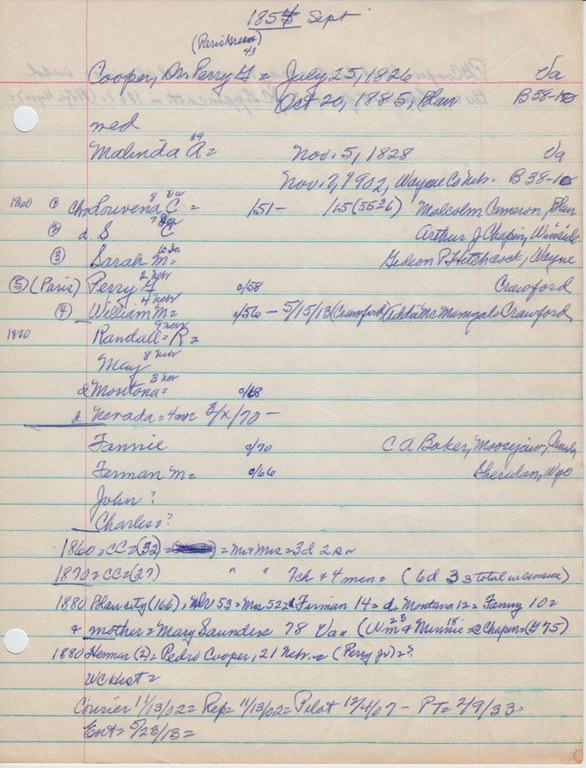 1854 Sept
(Paris Green)
43
Cooper, Dr. Perry G = July 25, 1826 Va
Oct 20, 1885, Blair B 38-10
med
Malinda A = Nov. 5, 1828 Va
Nov. 1902, Wayne Co Nebr. B 38-10
1860 ① Louvena C = 1/51 - Malcolm Cameron, Blair
② d. S Arthur J Chapin, Winside
③ Sarah M = Gideon P. Hitchcock, Wayne
⑤ (Paris) Perry G c/58 Crawford
④ William M = c/56 - 5/15/13 (Crawford) Addie McMunigal Crawford
1870 Randall = R =
May
d Montana = c/68
d Nevada = 4 mo 3/x/70 -
Fannie c/70 C A Baker, Moosejaw,
Ferman M = c/66 Sheridan, Wyo
John ?
Charles = ?
1860 = CC = (32) = = Mr & Mrs = 3d 2s
1870 = CC = (27) " " 7ch & 4 men = (6d 3s total in census)
1880 Blair city (166), 53 = Mrs 52 = Ferman 14 = d. Montana 12 = Fanny 10 =
& mother = Mary Saunders 78 Va = (Wm & Minnie = @ Chapin = (#75)
1880 Herman (2) = Pedro Cooper, 21 Nebr. = (Perry Jr) = ?
WC Hist =
Courier 11/13/02 = Rep = 11/13/02 = Pilot 12/4/07 - PT = 2/9/33 =
Ent = 5/23/13 =